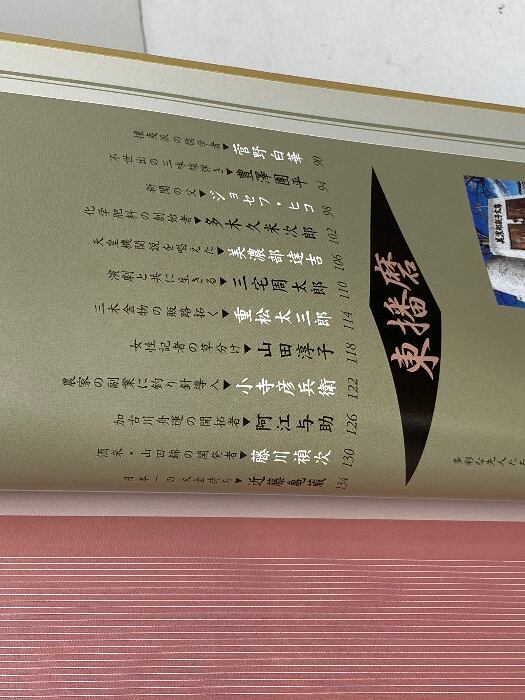 東播磨
懐疑派の儒学者▼菅野白華 90
不世出の三味線弾き▼豊澤團平 94
新聞の父▼ジョセフ・ヒコ 98
化学肥料の創始者▼多木久米次郎 102
天皇機関説を唱えた▼美濃部達吉 106
演劇と共に生きる▼三宅周太郎 110
三木金物の販路拓く▼重松太三郎 114
女性記者の草分け▼山田淳子 118
農家の副業に釣り針導入▼小寺彦兵衛 122
加古川舟運の開拓者▼阿江与助 126
酒米・山田錦の開発者▼藤川禎次 130
日本一の大金持ち▼近藤亀蔵 134
多彩な先人た